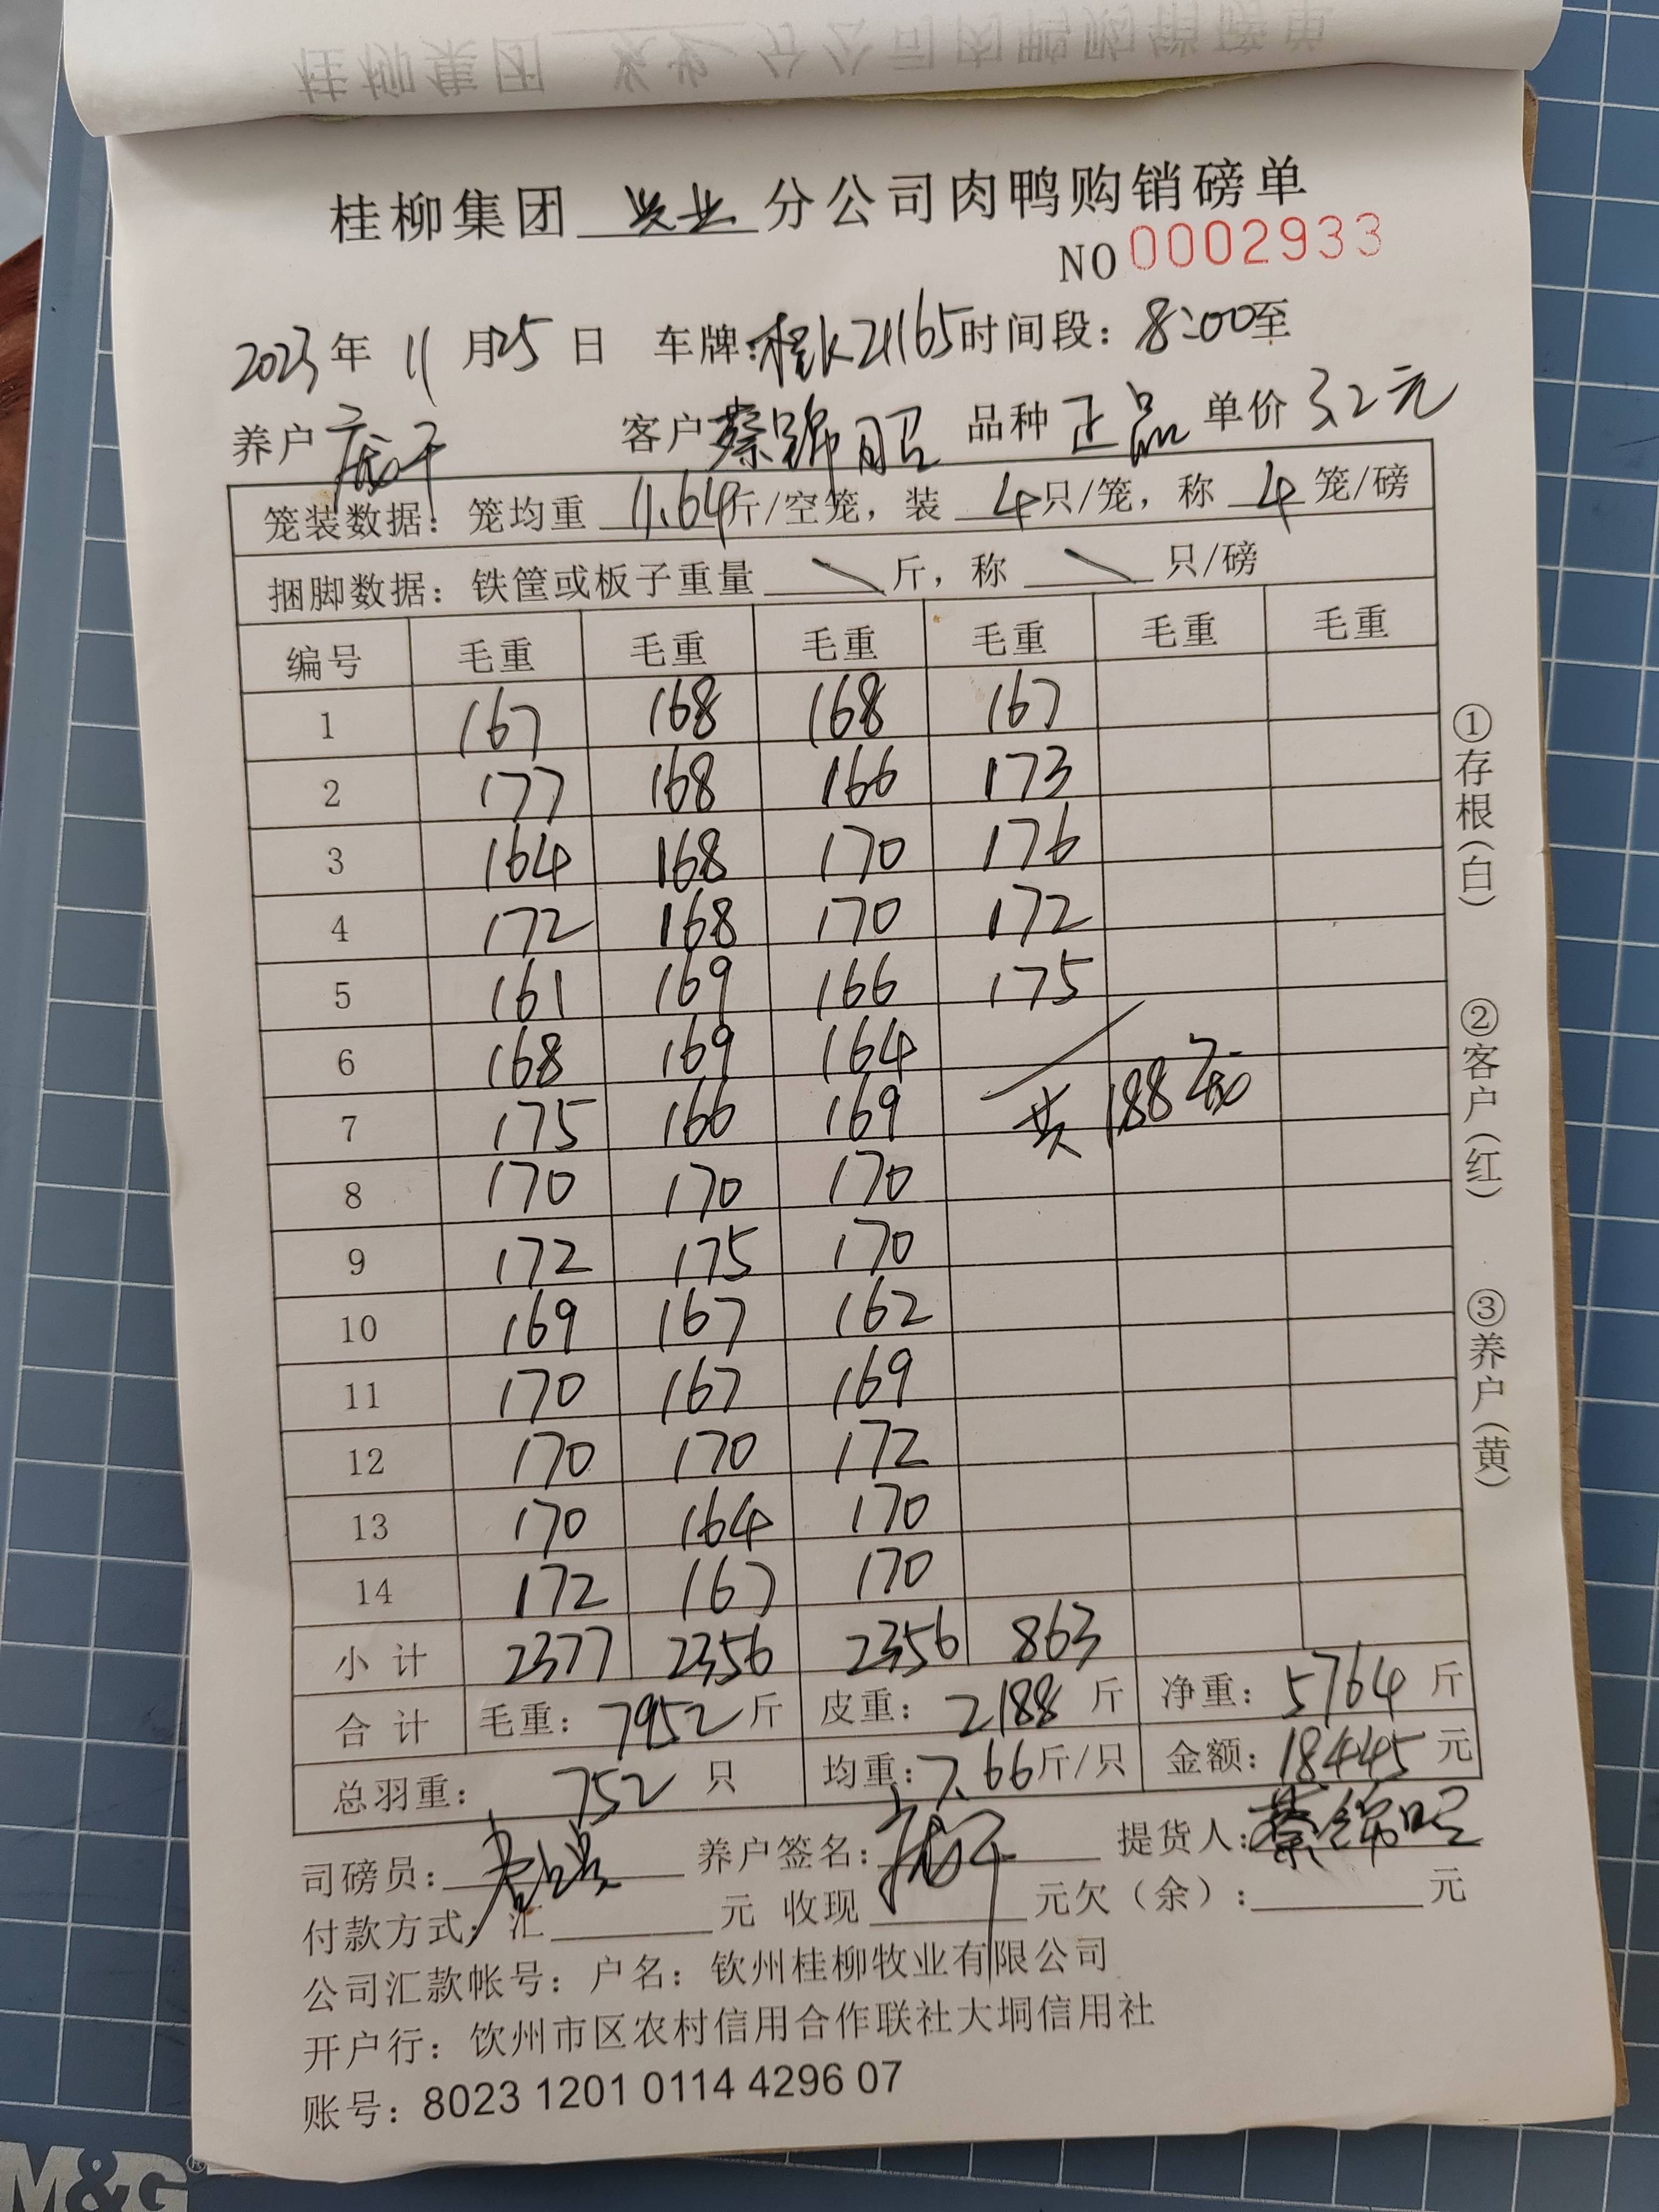 桂柳集团 兴业 分公司肉鸭购销磅单
NO 0002933
2023年 11 月25 日 车牌:桂K21165时间段: 8:00至
养户 客户 蔡锦昭 品种 正品 单价 3.2元
笼装数据: 笼均重 11.64斤/空笼, 装 4只/笼, 称 4 笼/磅
捆脚数据: 铁筐或板子重量 \ 斤, 称 \ 只/磅
编号 毛重 毛重 毛重 毛重 毛重 毛重
1 167 168 168 167
2 177 168 166 173
3 164 168 170 176
4 172 168 170 172
5 161 169 166 175
6 168 169 164
7 175 166 169 共 188
8 170 170 170
9 172 175 170
10 169 167 162
11 170 167 169
12 170 170 172
13 170 164 170
14 172 167 170
小 计 2377 2356 2356 863
合 计 毛重: 7952斤 皮重: 2188 斤 净重: 5764 斤
总羽重: 752 只 均重:7.66斤/只 金额: 18445 元
司磅员: 养户签名: 提货人:蔡锦昭
付款方式: 汇 元 收现 元欠(余): 元
公司汇款帐号: 户名: 钦州桂柳牧业有限公司
开户行: 钦州市区农村信用合作联社大垌信用社
账号: 8023 1201 0114 4296 07
①存根(白) ②客户(红) ③养户(黄)
M&G®